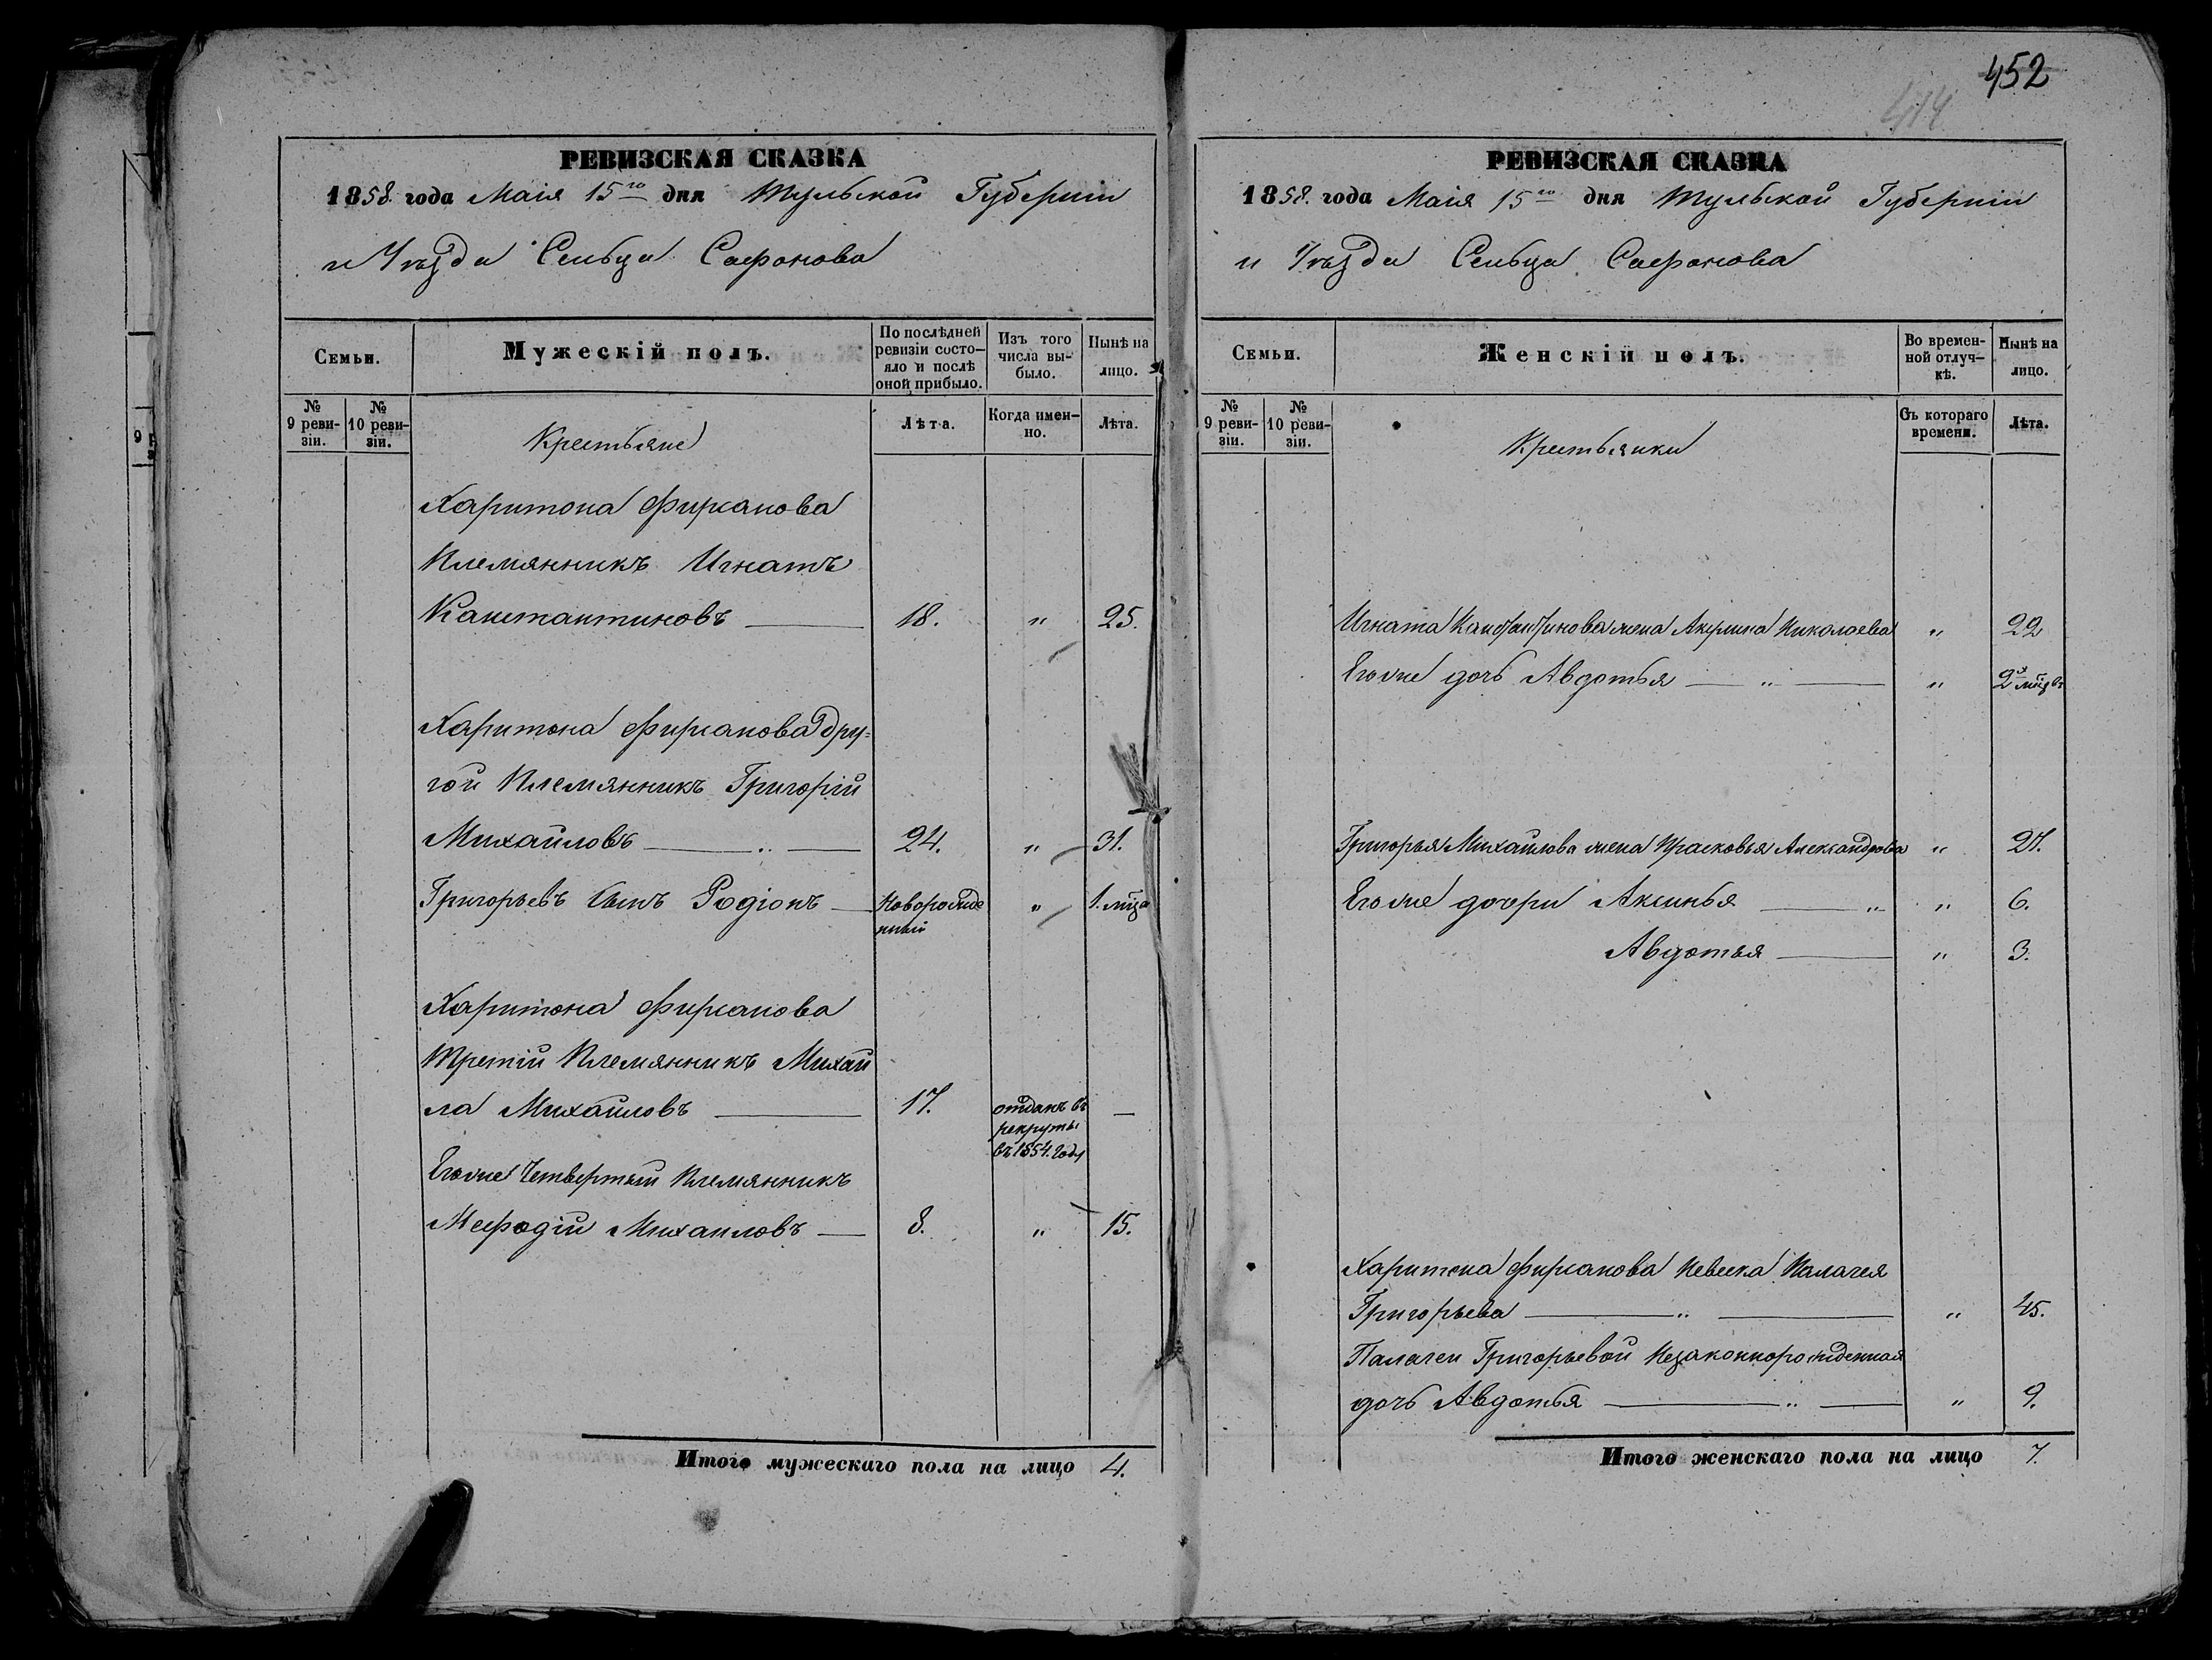 452
414
РЕВИЗСКАЯ СКАЗКА
1858. года Маія 15го дня Тульской Губерніи
и Уѣзда Сельца Сафонова
Семьи.
Мужескій полъ.
По послѣдней
ревизіи состо–
яло и послѣ
оной прибыло.
Изъ того
числа вы–
было.
Нынѣ на
лицо.
№
9 реви–
зіи.
№
10 реви–
зіи.
Крестьяне
Лѣта.
Когда имен–
но.
Лѣта.
Харитона Фирсанова
Племянникъ Игнатъ
Канстантиновъ — 18. " 25.
Харитона Фирсанова дру=
гой Племянникъ Григорій
Михайловъ — " — 24. " 31.
Григорьевъ сынъ Родіонъ — Новорожде " 1. мца
нный
Харитона Фирсанова
Третій Племянникъ Михай
ла Михайловъ — 17. отданъ въ —
рекруты
въ 1854. году
Егоже Четвертый Племянникъ
Мефодій Михаиловъ — 8. " 15.
Итого мужескаго пола на лицо 4.
РЕВИЗСКАЯ СКАЗКА
1858. года Маія 15го дня Тульской Губерніи
и Уѣзда Сельца Сафонова
Семьи.
Женскій полъ.
Во времен–
ной отлуч–
кѣ.
Нынѣ на
лицо.
№
9 реви–
зіи.
№
10 реви–
зіи.
Крестьянки
Съ котораго
времени.
Лѣта.
Игната Канстантинова жена Акулина Николаева " 22
Егоже дочь Авдотья — " — " 2х мцвъ
Григорья Михайлова жена Прасковья Александрова " 27.
Егоже дочери Аксинья — " " 6.
Авдотья — " 3.
Харитона Фирсанова Невеска Палагея
Григорьева — " — " 45.
Палагеи Григорьевой Незаконнорожденная
дочь Авдотья — " — " 9.
Итого женскаго пола на лицо 7.